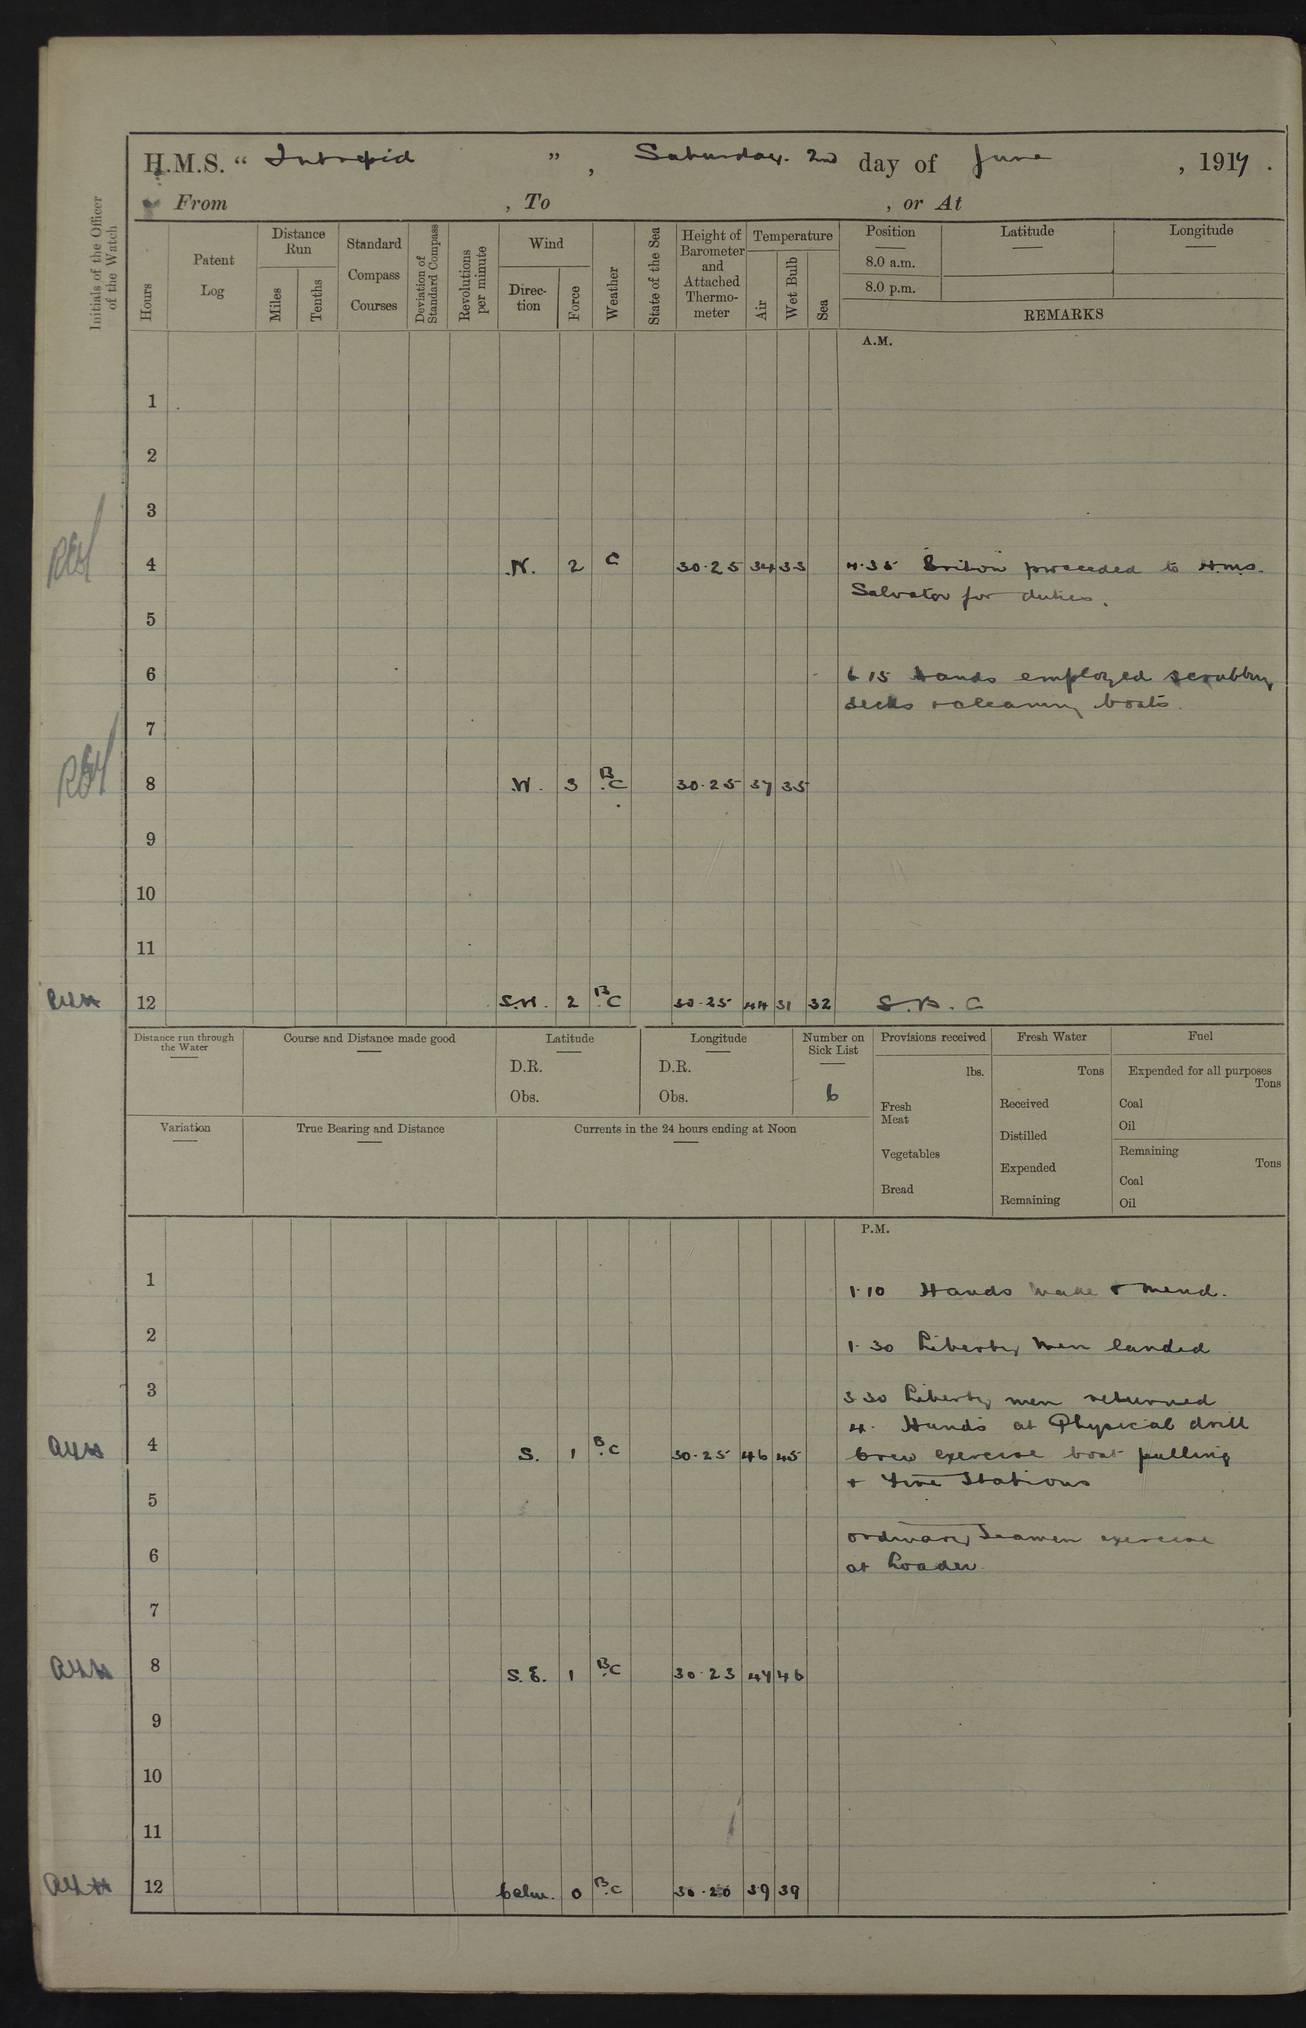 H.M.S. " Intrepid ", Saturday. 2nd day of June , 1917 .
From , To , or At
Initials of the Officer of the Watch
Hours
Patent Log
Distance Run
Miles
Tenths
Standard Compass Courses
Deviation of Standard Compass
Revolutions per minute
Wind
Direction
Force
Weather
State of the Sea
Height of Barometer and Attached Thermo-meter
Temperature
Air
Wet Bulb
Sea
Position
8.0 a.m.
8.0 p.m.
Latitude
Longitude
REMARKS
A.M.
1
2
3
4 N. 2 C 30.25 34 33 4.35 Briton proceeded to H.M.S.
Salvator for duties.
5
6 6 15 Hands employed scrubbing
decks & cleaning boats.
7
8 W. 3 B.C 30.25 37 35
9
10
11
12 S.W. 2 B.C 30.25 44 31 32 S. B. C
Distance run through the Water
Course and Distance made good
Latitude
D.R.
Obs.
Longitude
D.R.
Obs.
Number on Sick List
6
Provisions received
lbs.
Fresh Meat
Vegetables
Bread
Fresh Water
Tons
Received
Distilled
Expended
Remaining
Fuel
Expended for all purposes
Tons
Coal
Oil
Remaining
Tons
Coal
Oil
Variation
True Bearing and Distance
Currents in the 24 hours ending at Noon
P.M.
1 1.10 Hands make & mend.
2 1.30 Liberty men landed
3 3 30 Liberty men returned
4. Hands at Physical drill
4 S. 1 B.C 30.25 46 45 Crew exercise boat pulling
& Fire Stations
5
ordinary Seamen exercise
6 at Loader.
7
8 S.E. 1 B.C 30.23 47 46
9
10
11
12 Calm. 0 B.C 30.20 39 39